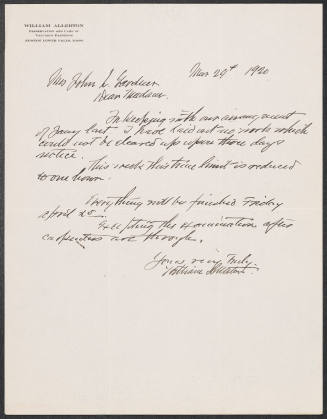 WILLIAM ALLERTON
PRESERVATION AND CARE OF
VALUABLE PAINTINGS
NEWTON LOWER FALLS, MASS.
Mar 29th 1920
Mrs John L. Gardner
Dear Madam:
In keeping with our arrangement
of Jany last I have laid out no work which
could not be cleared up upon three days
notice.
This week this time limit is reduced
to one hour.
Everything will be finished Friday
April 2
Excepting the examination after
carpenters are through.
Yours very truly.
William Allerton.